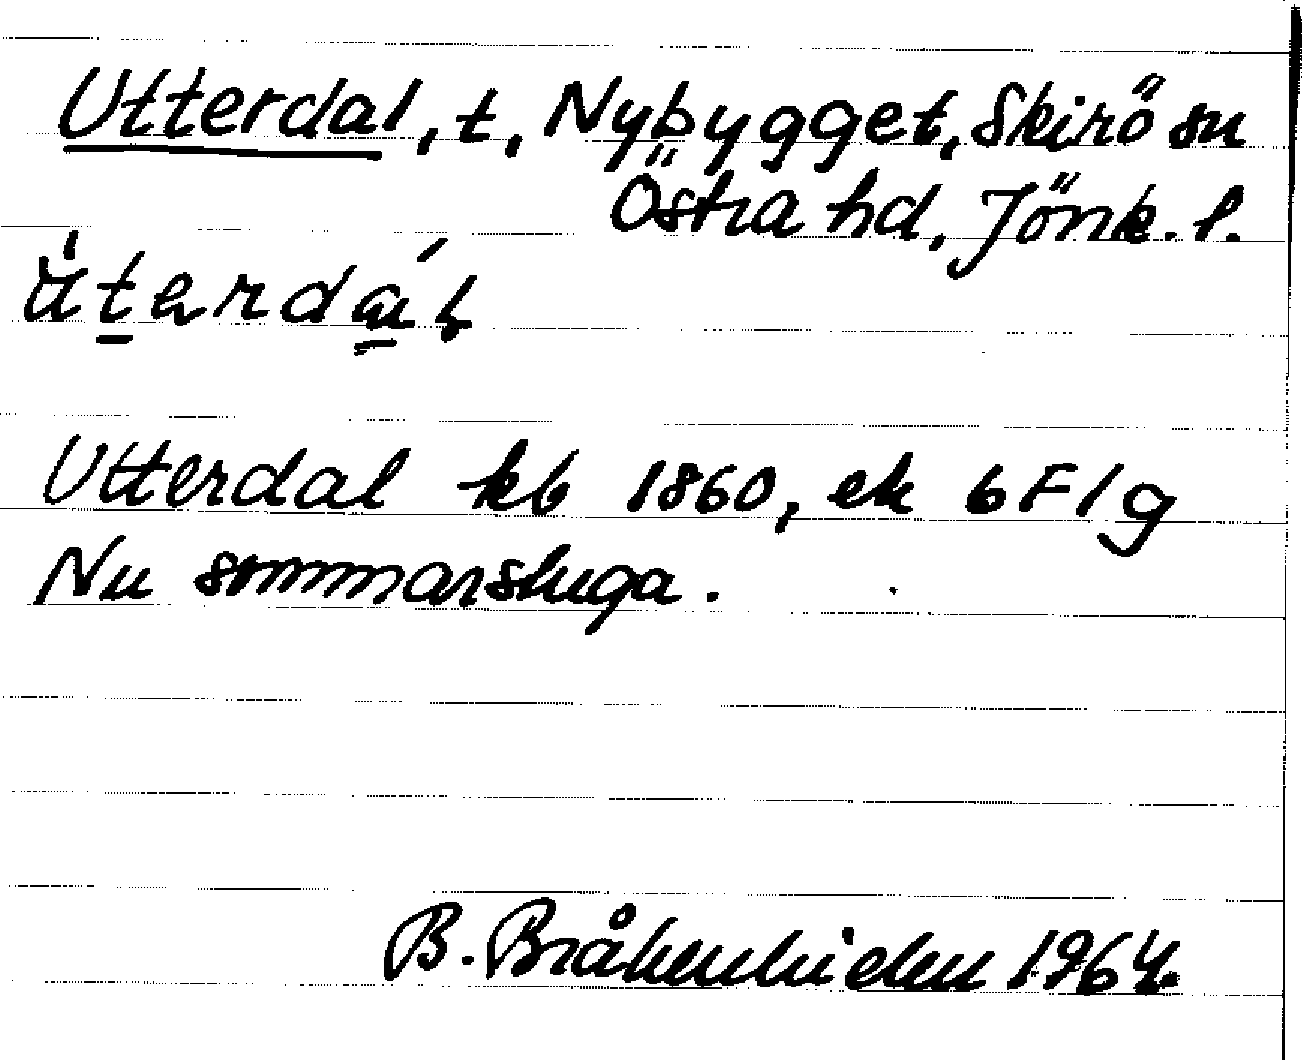 Utterdal, t, Nybygget, Skirö sn
Östra hd, Jönk. l.
Utterdal kb 1860, ek 6F1g
Nu sommarstuga.
B. Bråkenhielm 1964.